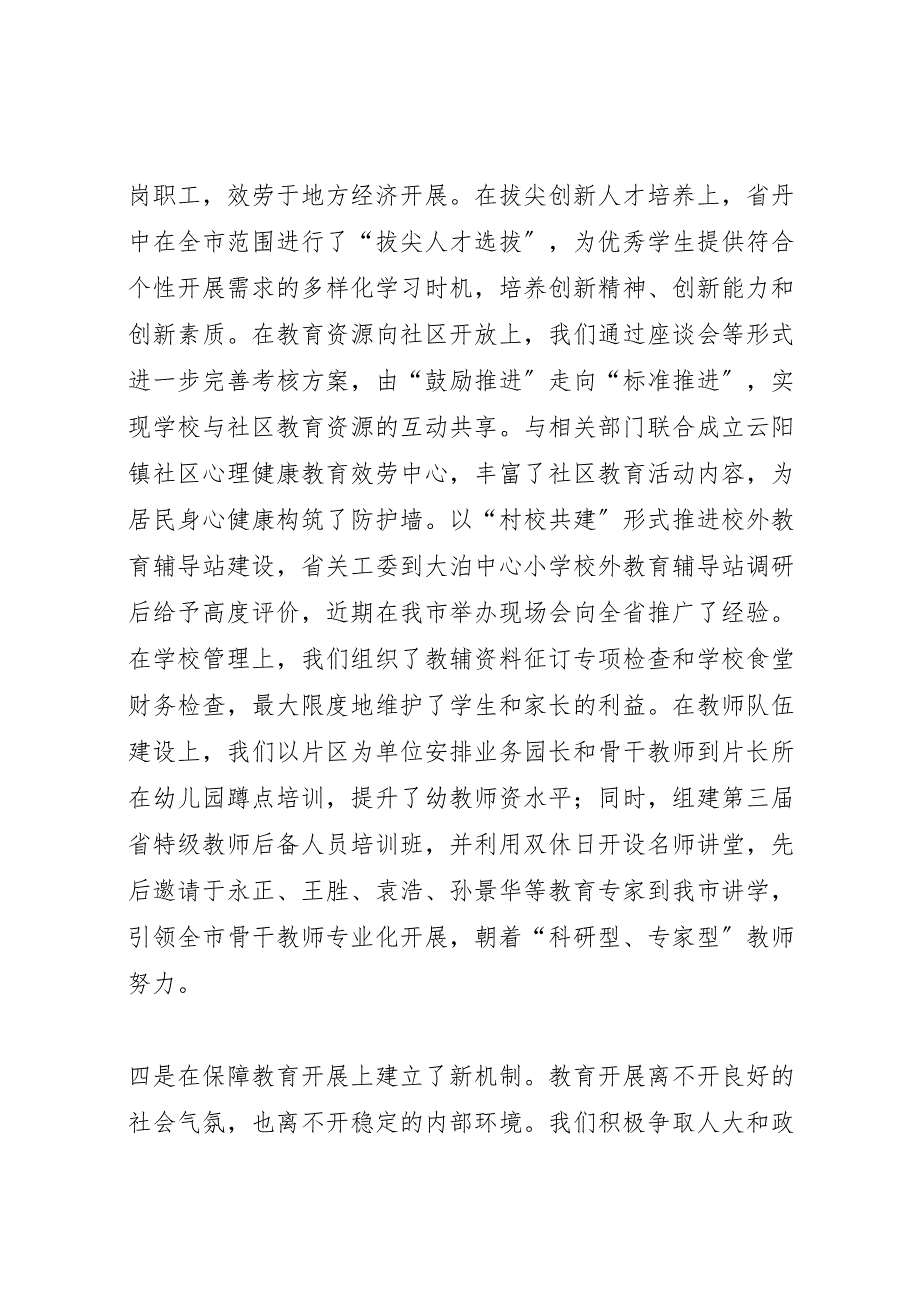 岗职工，效劳于地方经济开展。在拔尖创新人才培养上，省丹
中在全市范围进行了“拔尖人才选拔〞，为优秀学生提供符合
个性开展需求的多样化学习时机，培养创新精神、创新能力和
创新素质。在教育资源向社区开放上，我们通过座谈会等形式
进一步完善考核方案，由“鼓励推进〞走向“标准推进〞，实
现学校与社区教育资源的互动共享。与相关部门联合成立云阳
镇社区心理健康教育效劳中心，丰富了社区教育活动内容，为
居民身心健康构筑了防护墙。以“村校共建〞形式推进校外教
育辅导站建设，省关工委到大泊中心小学校外教育辅导站调研
后给予高度评价，近期在我市举办现场会向全省推广了经验。
在学校管理上，我们组织了教辅资料征订专项检查和学校食堂
财务检查，最大限度地维护了学生和家长的利益。在教师队伍
建设上，我们以片区为单位安排业务园长和骨干教师到片长所
在幼儿园蹲点培训，提升了幼教师资水平；同时，组建第三届
省特级教师后备人员培训班，并利用双休日开设名师讲堂，先
后邀请于永正、王胜、袁浩、孙景华等教育专家到我市讲学，
引领全市骨干教师专业化开展，朝着“科研型、专家型〞教师
努力。
四是在保障教育开展上建立了新机制。教育开展离不开良好的
社会气氛，也离不开稳定的内部环境。我们积极争取人大和政